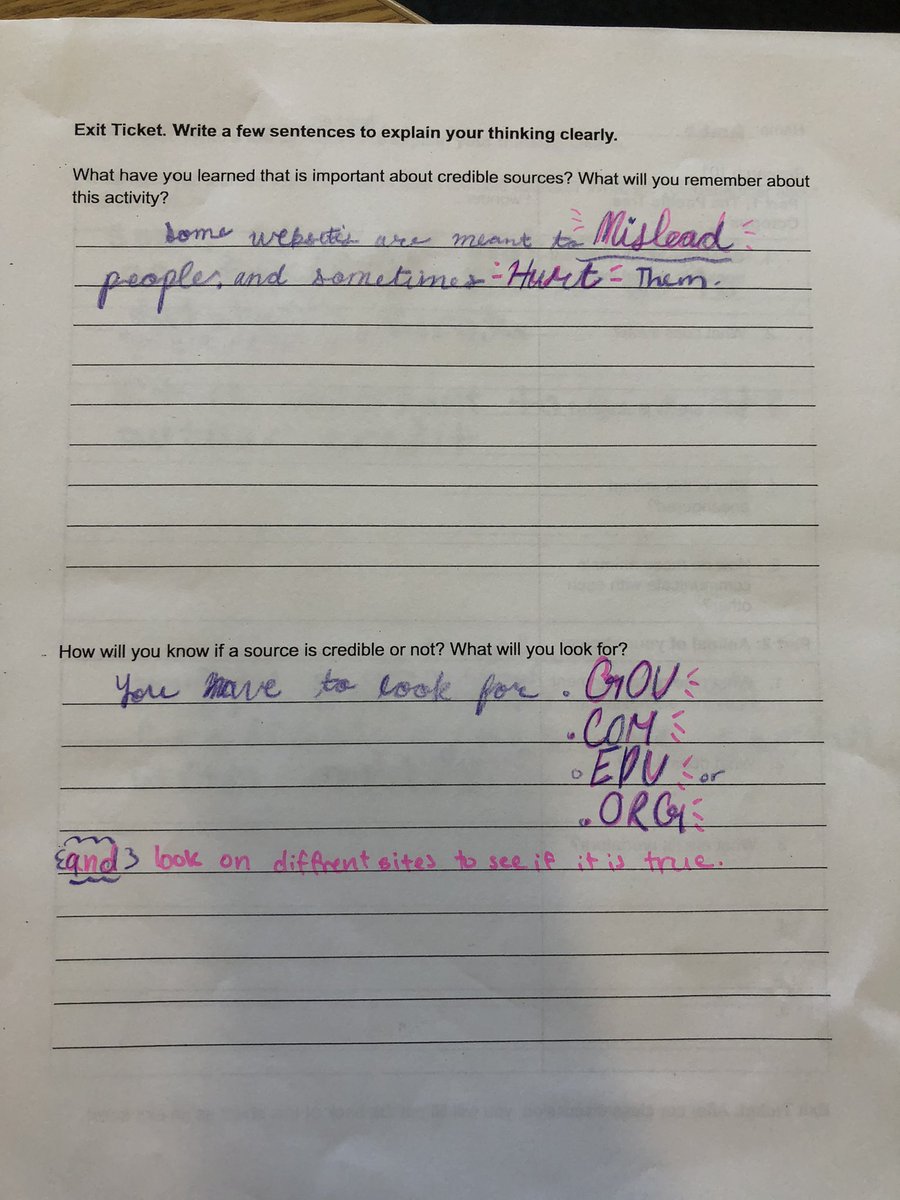 Exit Ticket. Write a few sentences to explain your thinking clearly.
What have you learned that is important about credible sources? What will you remember about
this activity?
Some websites are meant to Mislead
people, and sometimes Hurt Them.
How will you know if a source is credible or not? What will you look for?
You have to look for .GOV
.COM
.EDU or
.ORG
and look on diffrent sites to see if it is true.